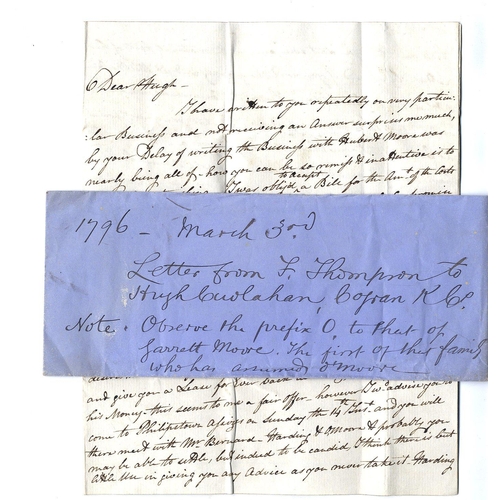 Dear Hugh -
I have written to you repeatedly on very particu-
-lar Business and not receiving an Answer surprises me much,
by your Delay of writing the Business with Hubert Moore was
nearly being all of - how you can be so remiss & inattentive is to
to accept
I was oblig'd a Bill for the Amt. of the Costs
1796 - March 3rd
Letter from F. Thompson to
Hugh Cuolahan, Cogran K. Co.
Note. Observe the prefix O, to that of
Garrett Moore. The first of this family
who has assumed O'Moore
and give you a Lease for Ever back
his Money - this seems to me a fair offer however I wd. advise you to
come to Philipstown Assizes on Sunday the 14th Inst. and you will
there meet with Mr. Bernard - Harding & OMoore & probably you
may be able to settle, but indeed to be candid I think there is but
little Use in giving you any Advice as you never take it. Harding